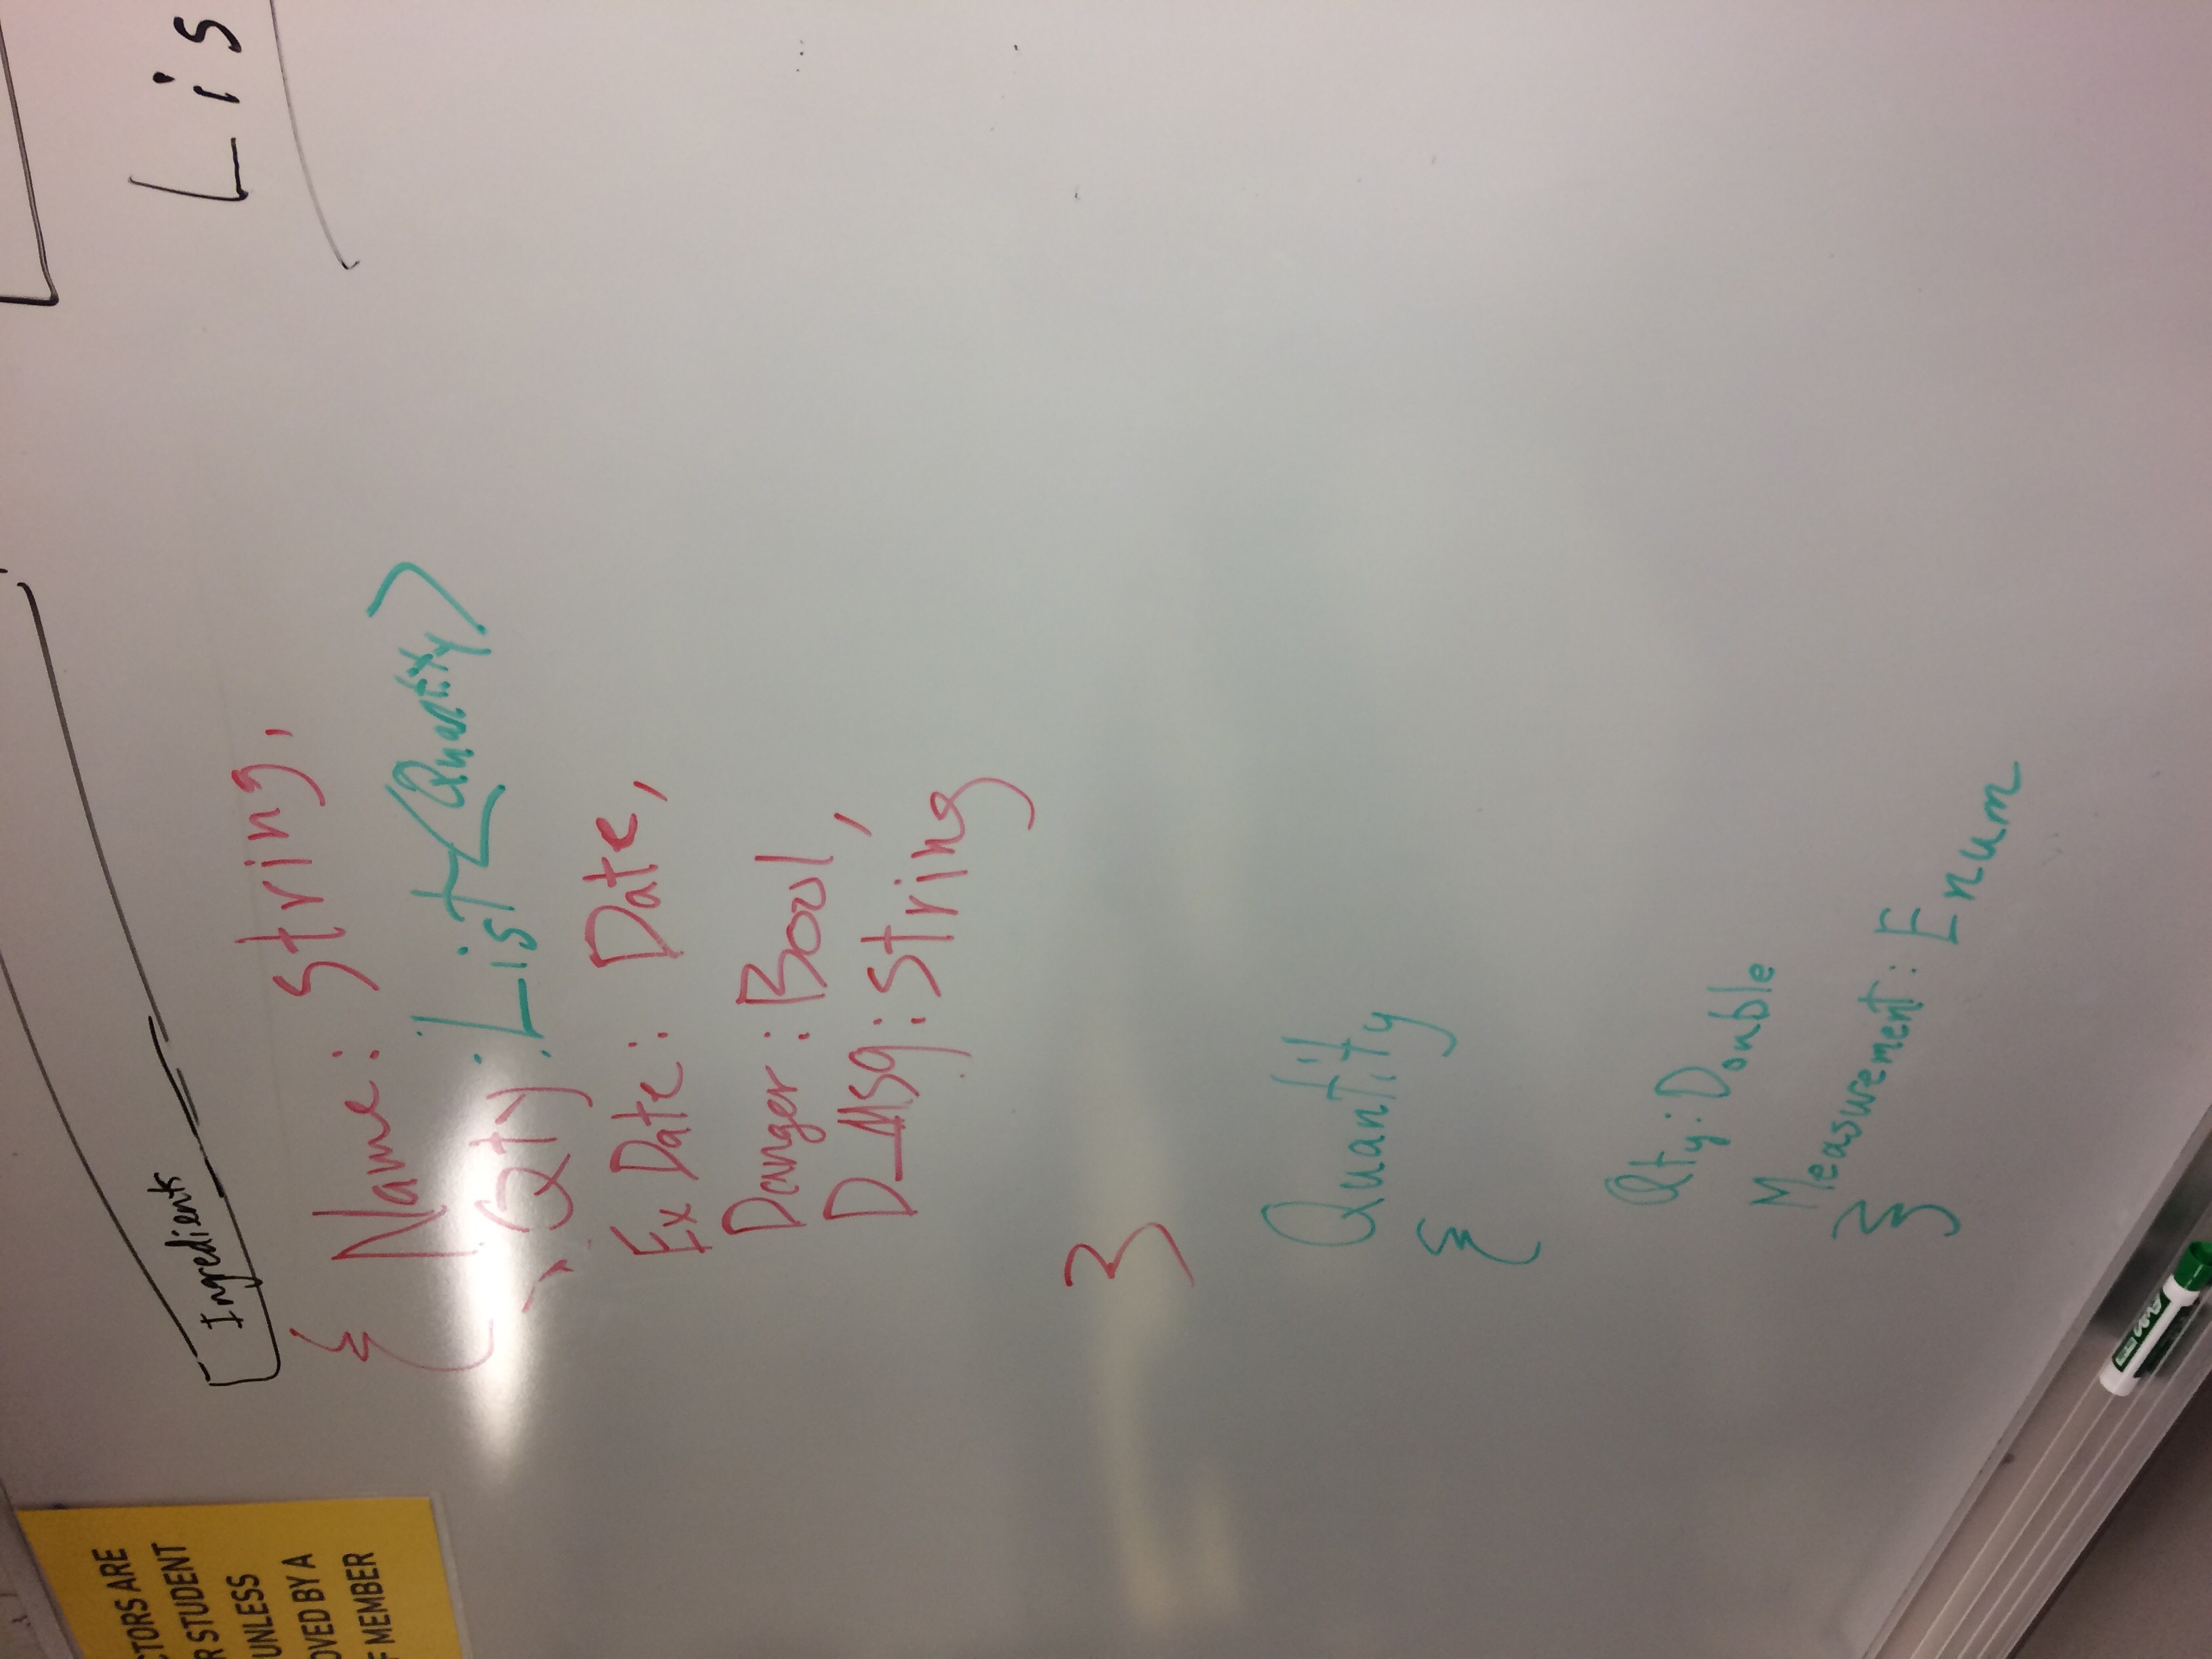 CTORS ARE
R STUDENT
UNLESS
OVED BY A
F MEMBER
Ingredients
Lis
{ Name: String,
Qty: List<Quantity>
Ex Date: Date,
Danger: Bool,
D_Msg: String
}
Quantity
{
Qty: Double
Measurement: Enum
}
EXPO